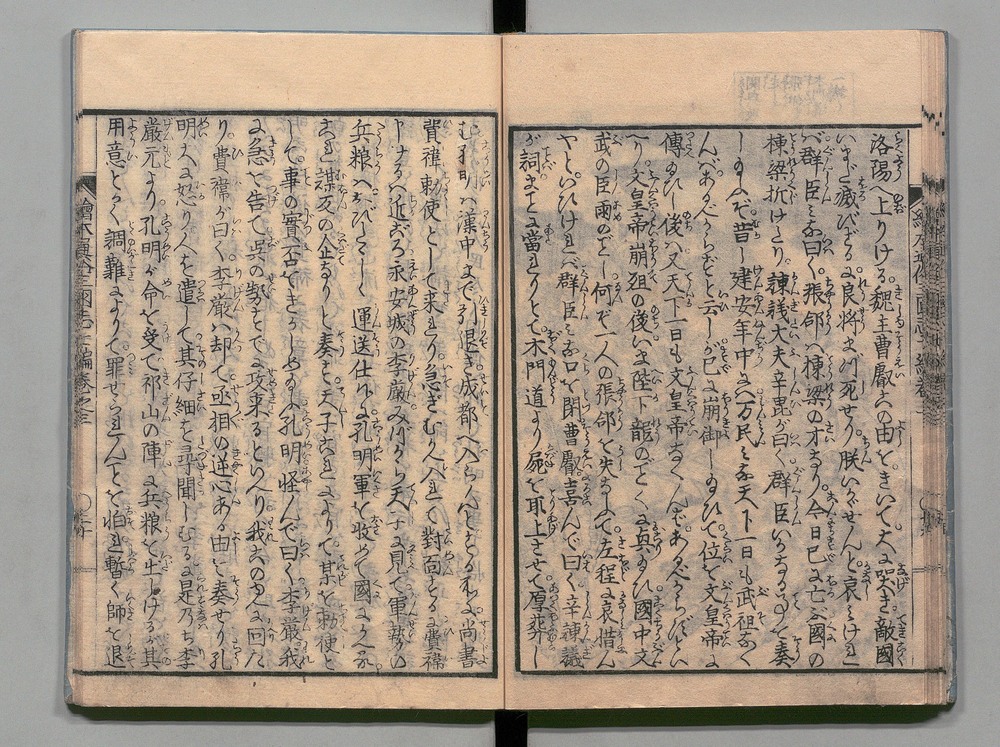 洛陽へ上りける。魏主曹叡この由をきいて。大に哭き敵國
いまだ滅びざるに良将まづ死せり。朕いかゞせんと哀みけれ
ば群臣みな曰く。張郃は棟梁の才なり。今日已に亡ぶ國の
棟梁折けたり。諫議大夫辛毘が曰く群臣いかなる事を奏
し玉ふぞ。昔し建安年中には万民みな天下一日も武祖なく
んばあるべからずと云しが已に崩御し玉ひて位を文皇帝に
傳玉ひし後は又天下一日も文皇帝なくんばあるべからずとい
へり。文皇帝崩殂の後いま陛下龍のごとく真玉ひ國中文
武の臣雨のごとし何ぞ一人の張郃を失ふまで左程に哀惜ん
やといひければ群臣みな口を閉曹叡喜んで曰く。辛諫議
が詞まことに當れりとて木門道より屍を取上させて厚葬し
む孔明は漢中まで引退き成都へ入らんとする処に尚書
費禕勅使として来れり急ぎむかへ入れて對面する費禕
申けるは近ごろ永安城の李厳みづから天子に見て軍勢の
兵粮はおびたゞしく運送仕りしに孔明軍を收めて國にかへる
これ謀叛の企なりと奏す天子これによりて某を勅使と
して。事の實否をきかしめ玉ふ孔明怪んで曰く。李厳我
に急を告て呉の勢すでに攻来るといへり我このゆへに回た
り。費禕が曰く李厳は却て丞相の逆心ある由を奏せり孔
明大に怒り人を遣して其仔細を尋聞しむるに是乃ち李
厳元より。孔明が命を受て祁山の陣に兵粮を出しけるが其
用意とゝのへ調難によりて罪せられんことを怕れ暫く師を退